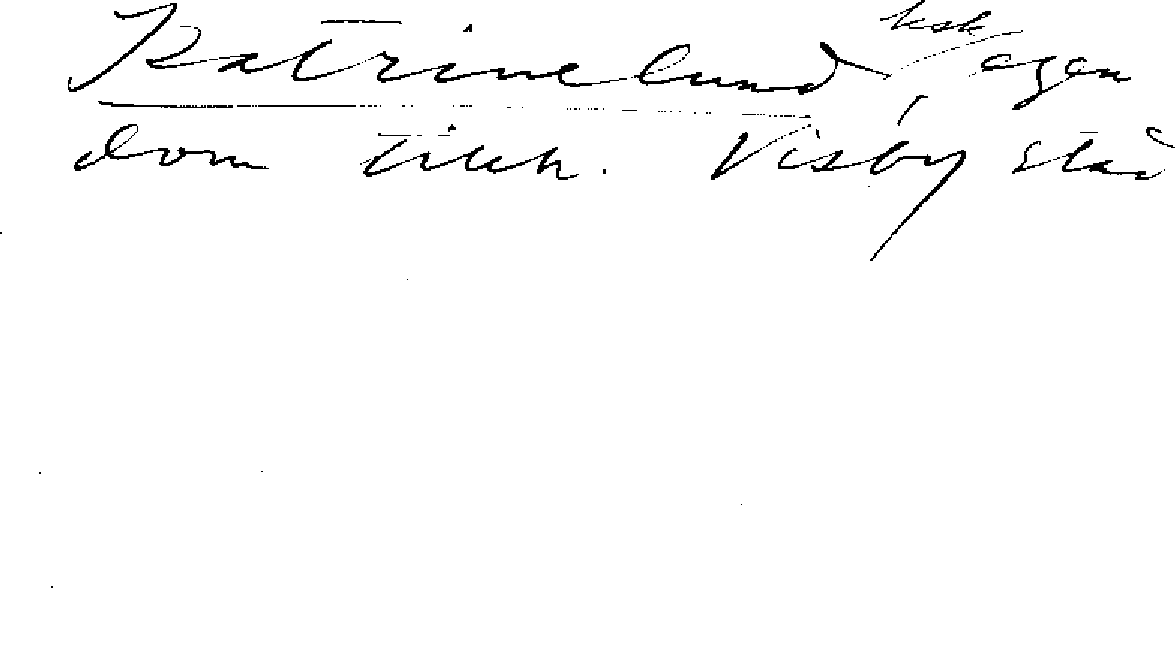 ksk
Katrinelund, egen
dom tillh. Visby stad